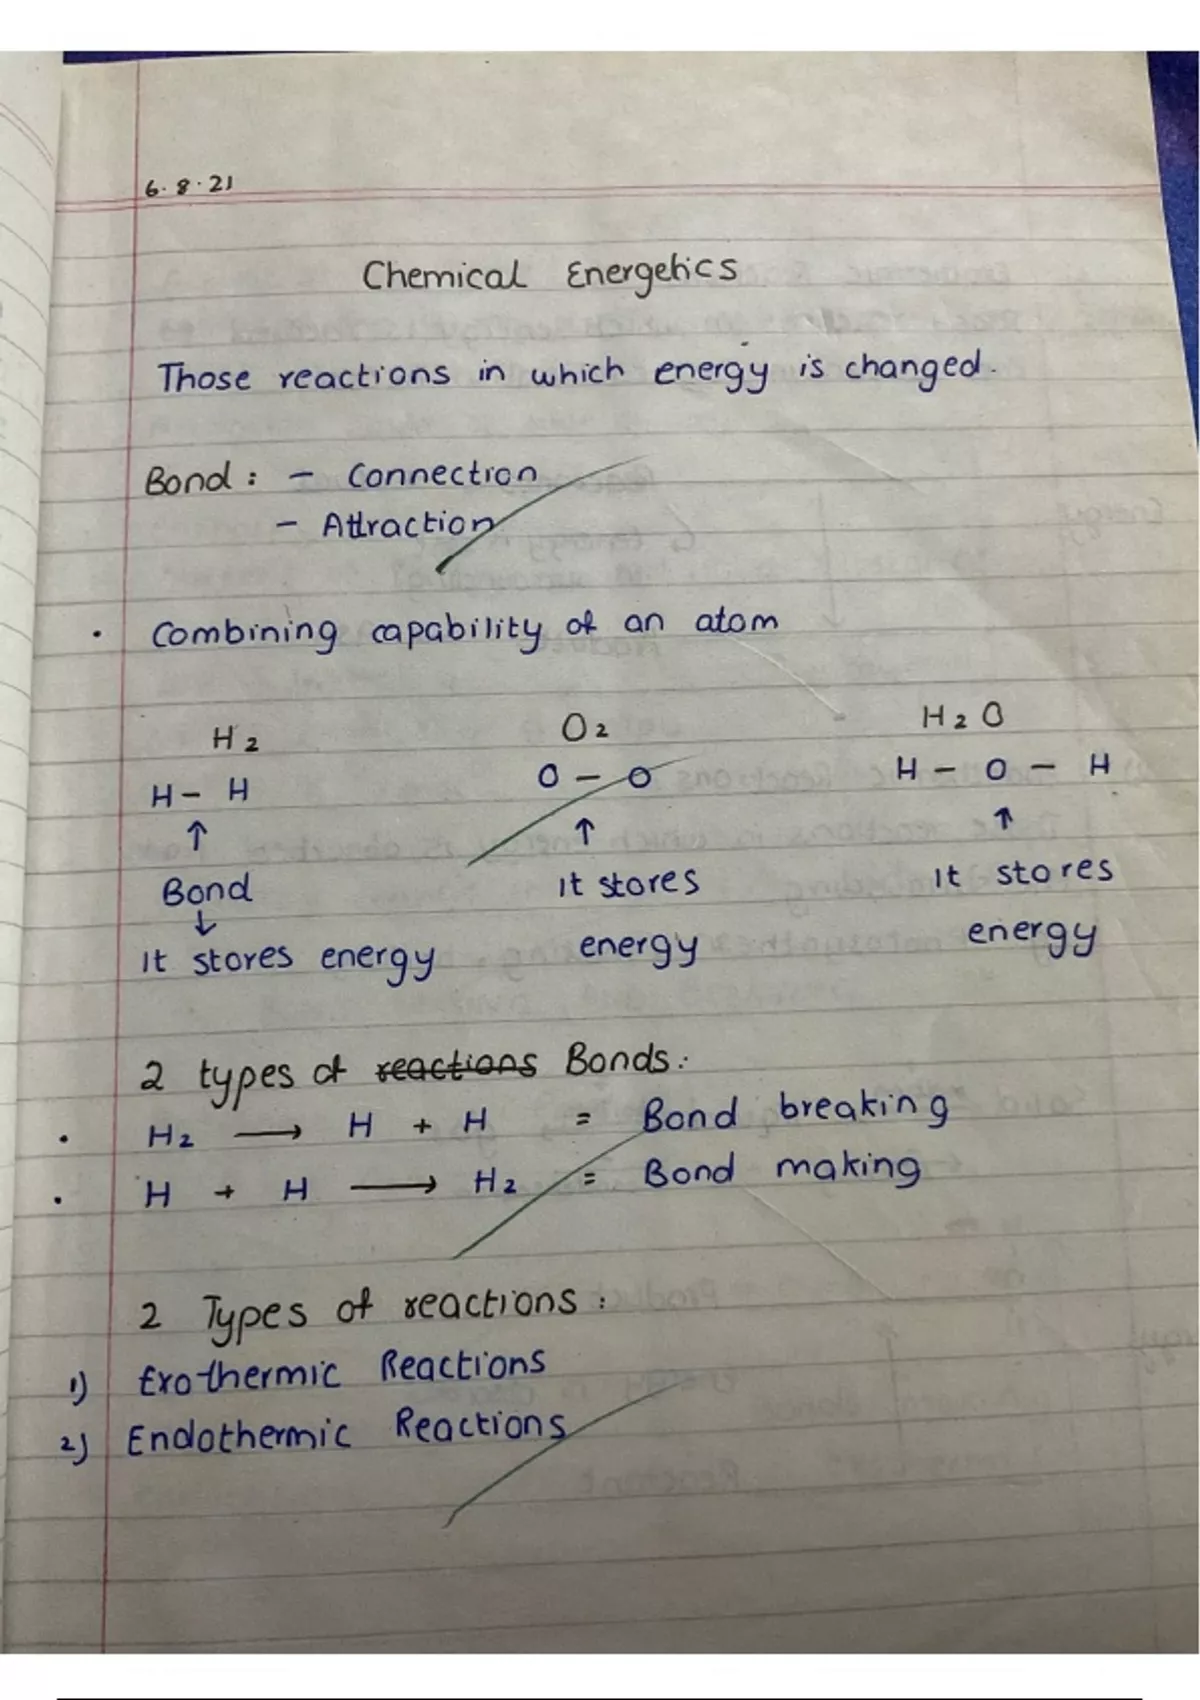 6.8.21
Chemical Energetics
Those reactions in which energy is changed.
Bond : - Connection
- Attraction
• Combining capability of an atom
H2 O2 H2O
H - H O - O H - O - H
↑ ↑ ↑
Bond It stores It stores
↓
It stores energy energy energy
2 types of reactions Bonds:
• H2 → H + H = Bond breaking
• H + H → H2 = Bond making
2 Types of reactions :
1) Exothermic Reactions
2) Endothermic Reactions